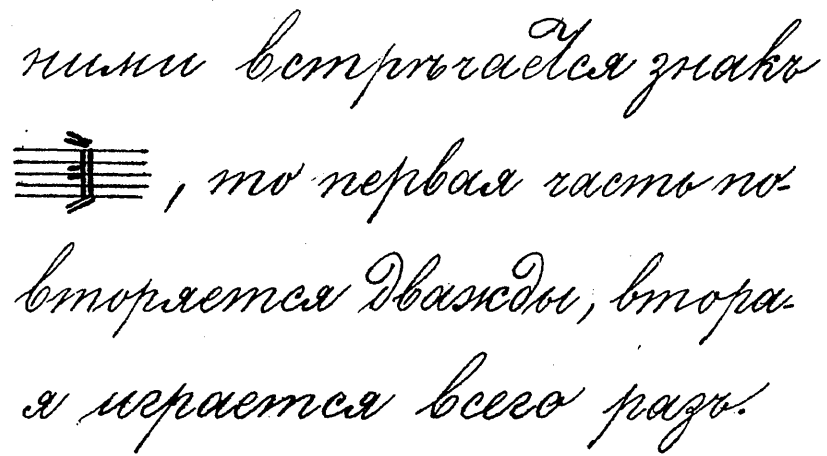 ними встрѣчается знакъ
, то первая часть по-
вторяется дважды, втора-
я играется всего разъ.